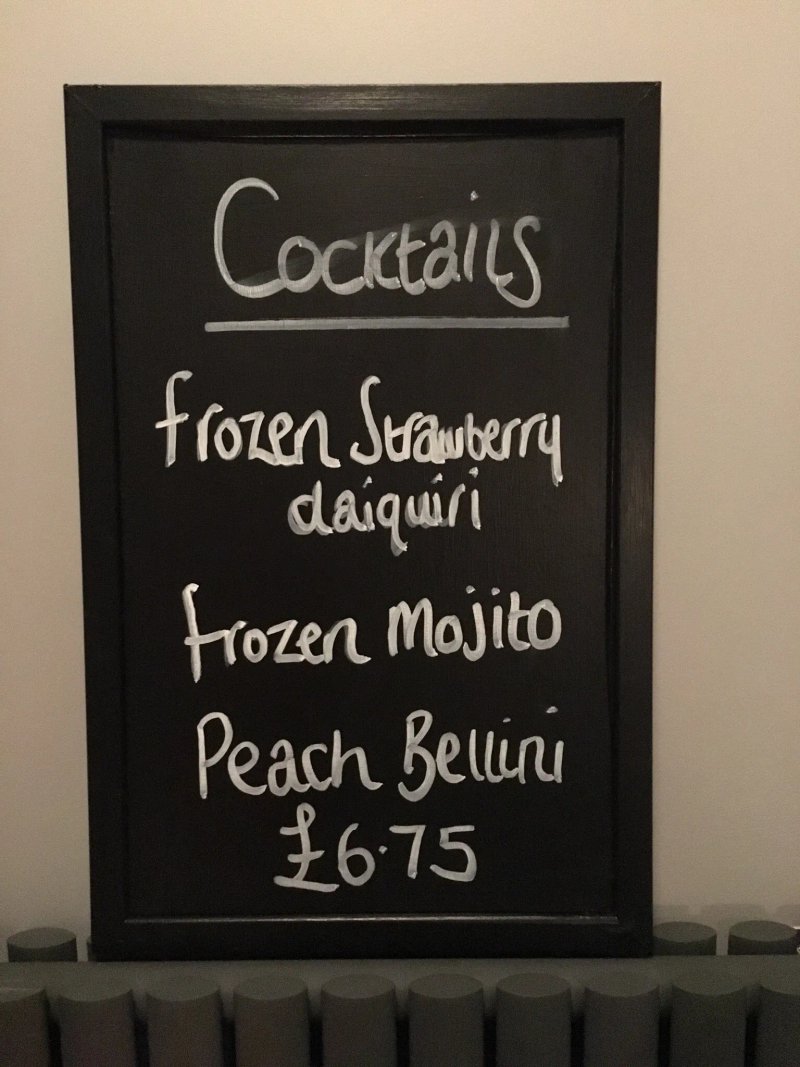 Cocktails
frozen Strawberry
daiquiri
frozen Mojito
Peach Bellini
£6.75